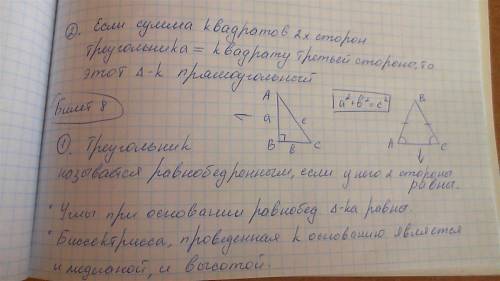 ②. Если сумма квадратов 2х сторон
треугольника = квадрату третьей стороны, то
этот Δ-к прямоугольный
Билет 8
A
a
c
B
в
C
a²+в²=c²
B
A
C
①. Треугольник
называется равнобедренным, если у него 2 стороны
равны.
• Углы при основании равнобед Δ-ка равны.
• Биссектрисса, проведенная к основанию является
и медианой, и высотой.